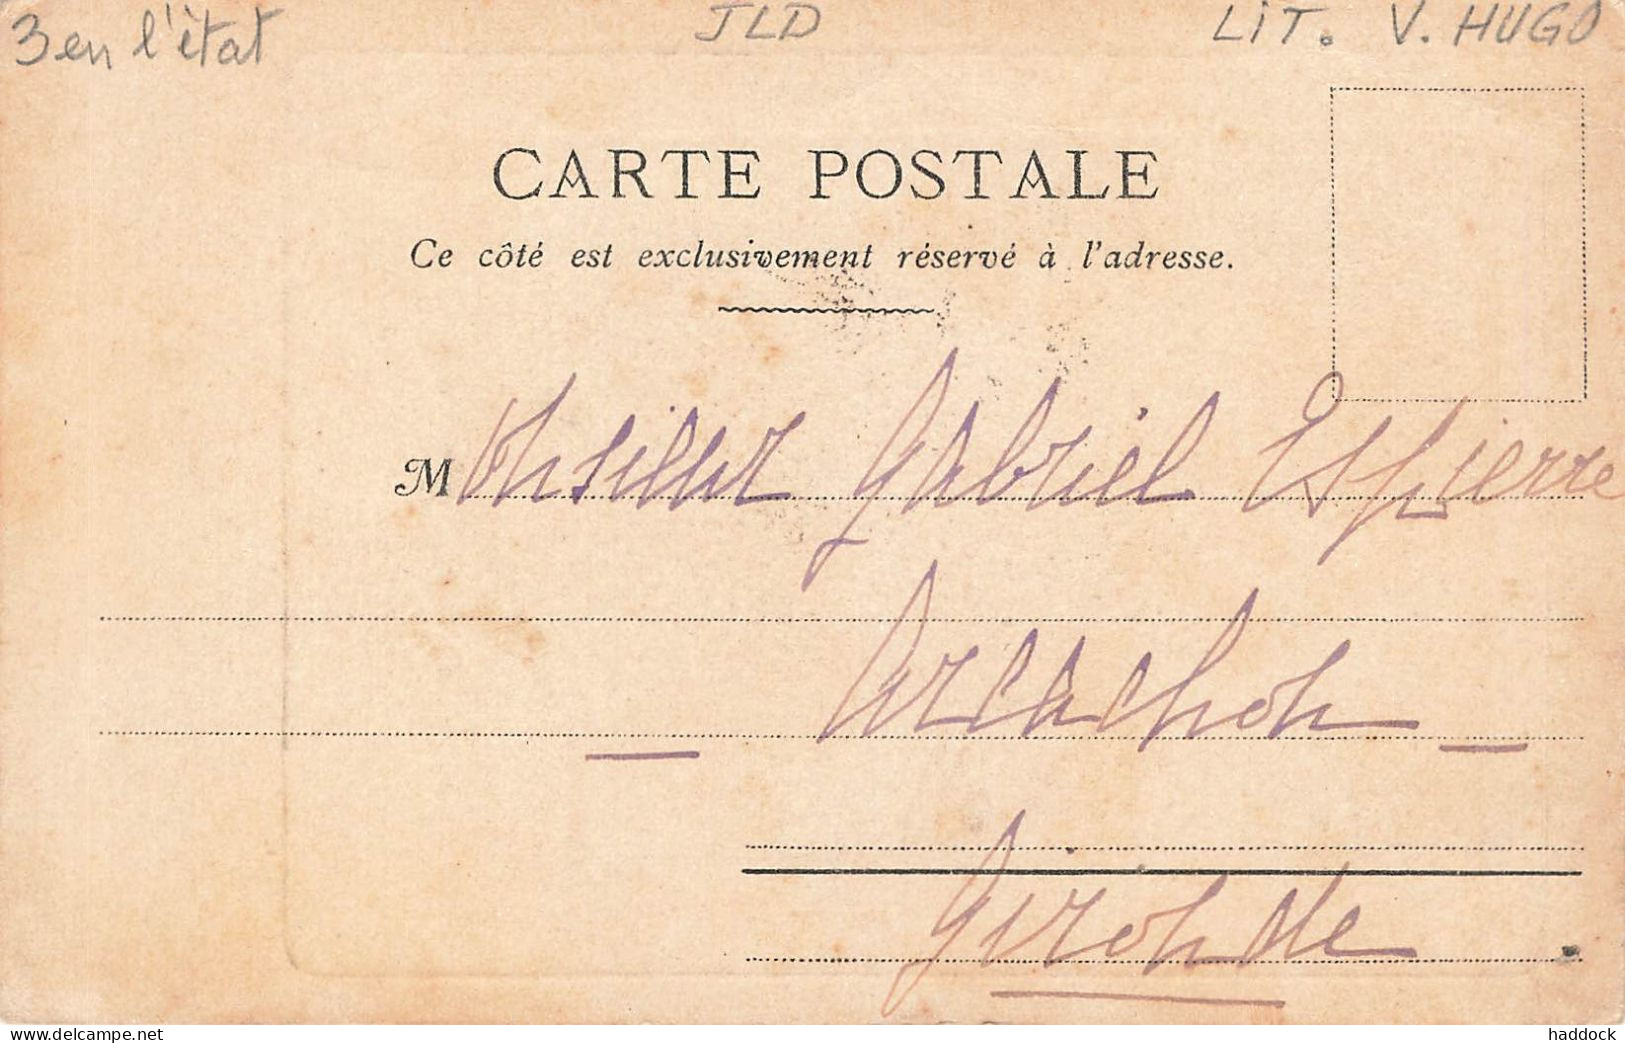 3 en l'état JLD LIT. V. HUGO
CARTE POSTALE
Ce côté est exclusivement réservé à l'adresse.
Monsieur Gabriel Espierre
Arcachon
Gironde
delcampe.net haddock